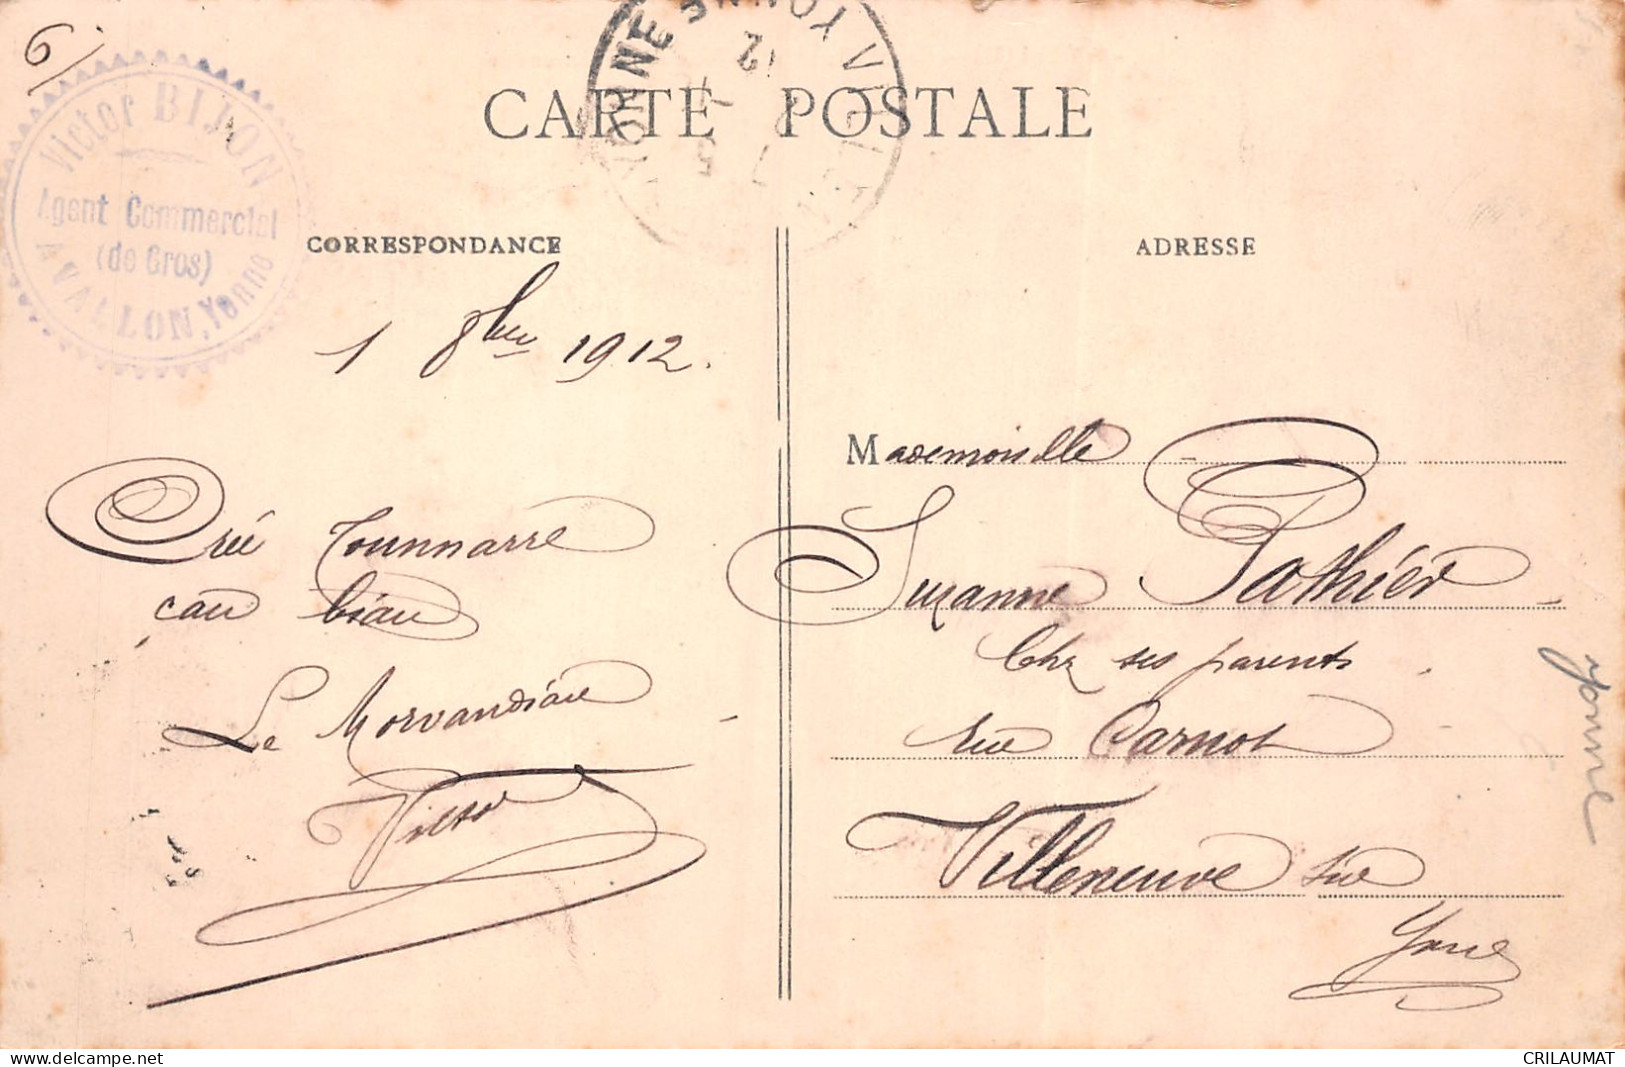 6
Victor BIJON
Agent Commercial
(de Gros)
AVALLON, Yonne
YONNE
12
CARTE POSTALE
CORRESPONDANCE
ADRESSE
1 8bre 1912.
Mademoiselle
Suzanne Pathier
Chez ses parents
rue Carnot
Villeneuve sur
Yonne
Cré tounnarre
çau biau
Le Morvandiau
Victor
yonne
www.delcampe.net
CRILAUMAT